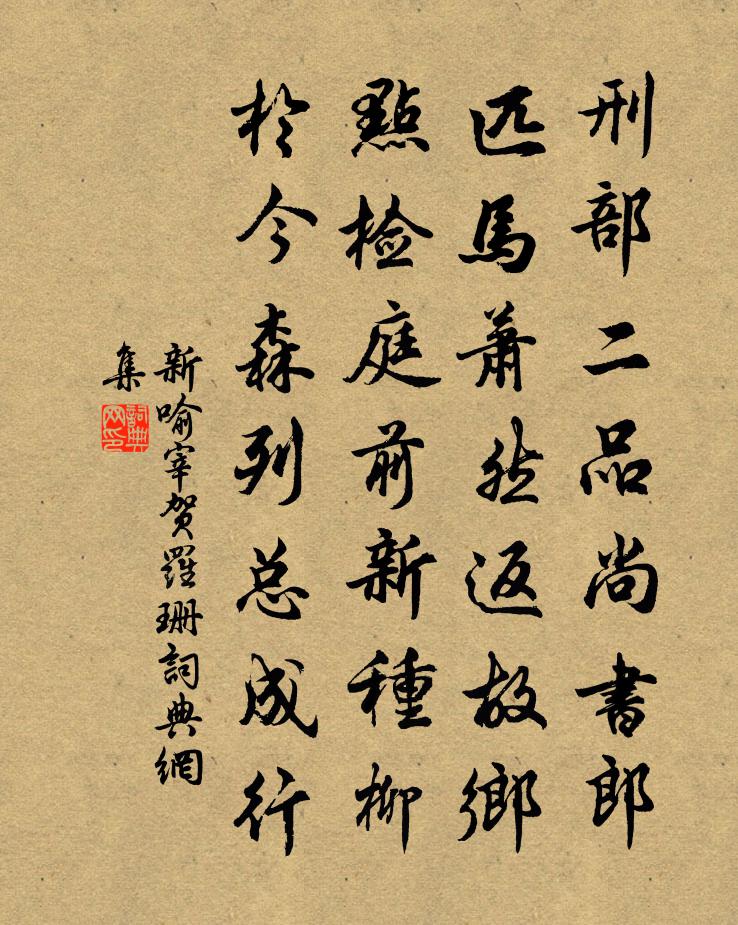 刑部二品尚書郎
匹馬蕭然返故鄉
點檢庭前新種柳
於今森列总成行
新喻宰贺羅珊詞典網
集
詞典
网印